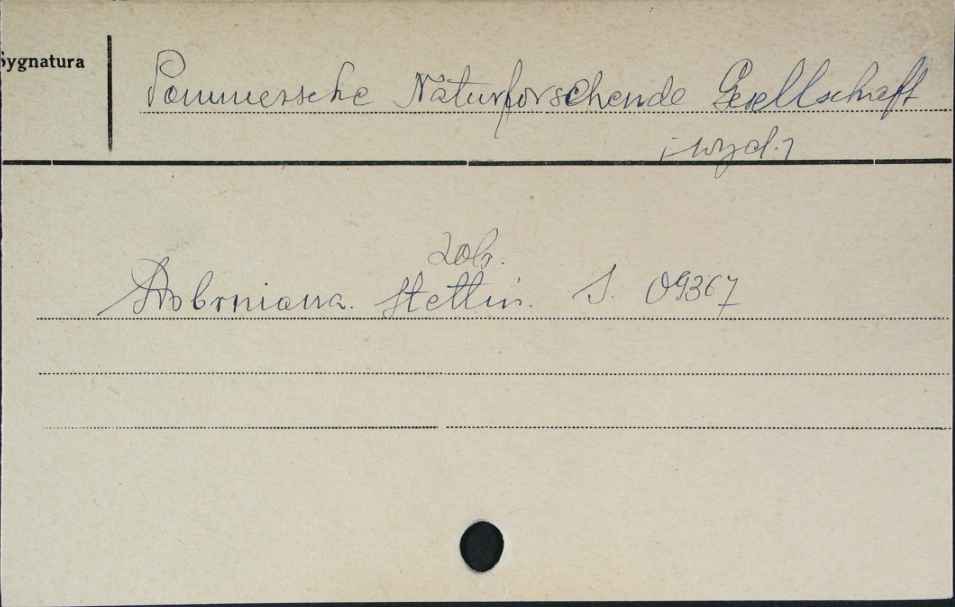 Sygnatura
Pommersche Naturforschende Gesellschaft
[wyd.]
zob.
Dohrniana. Stettin. S. 09367